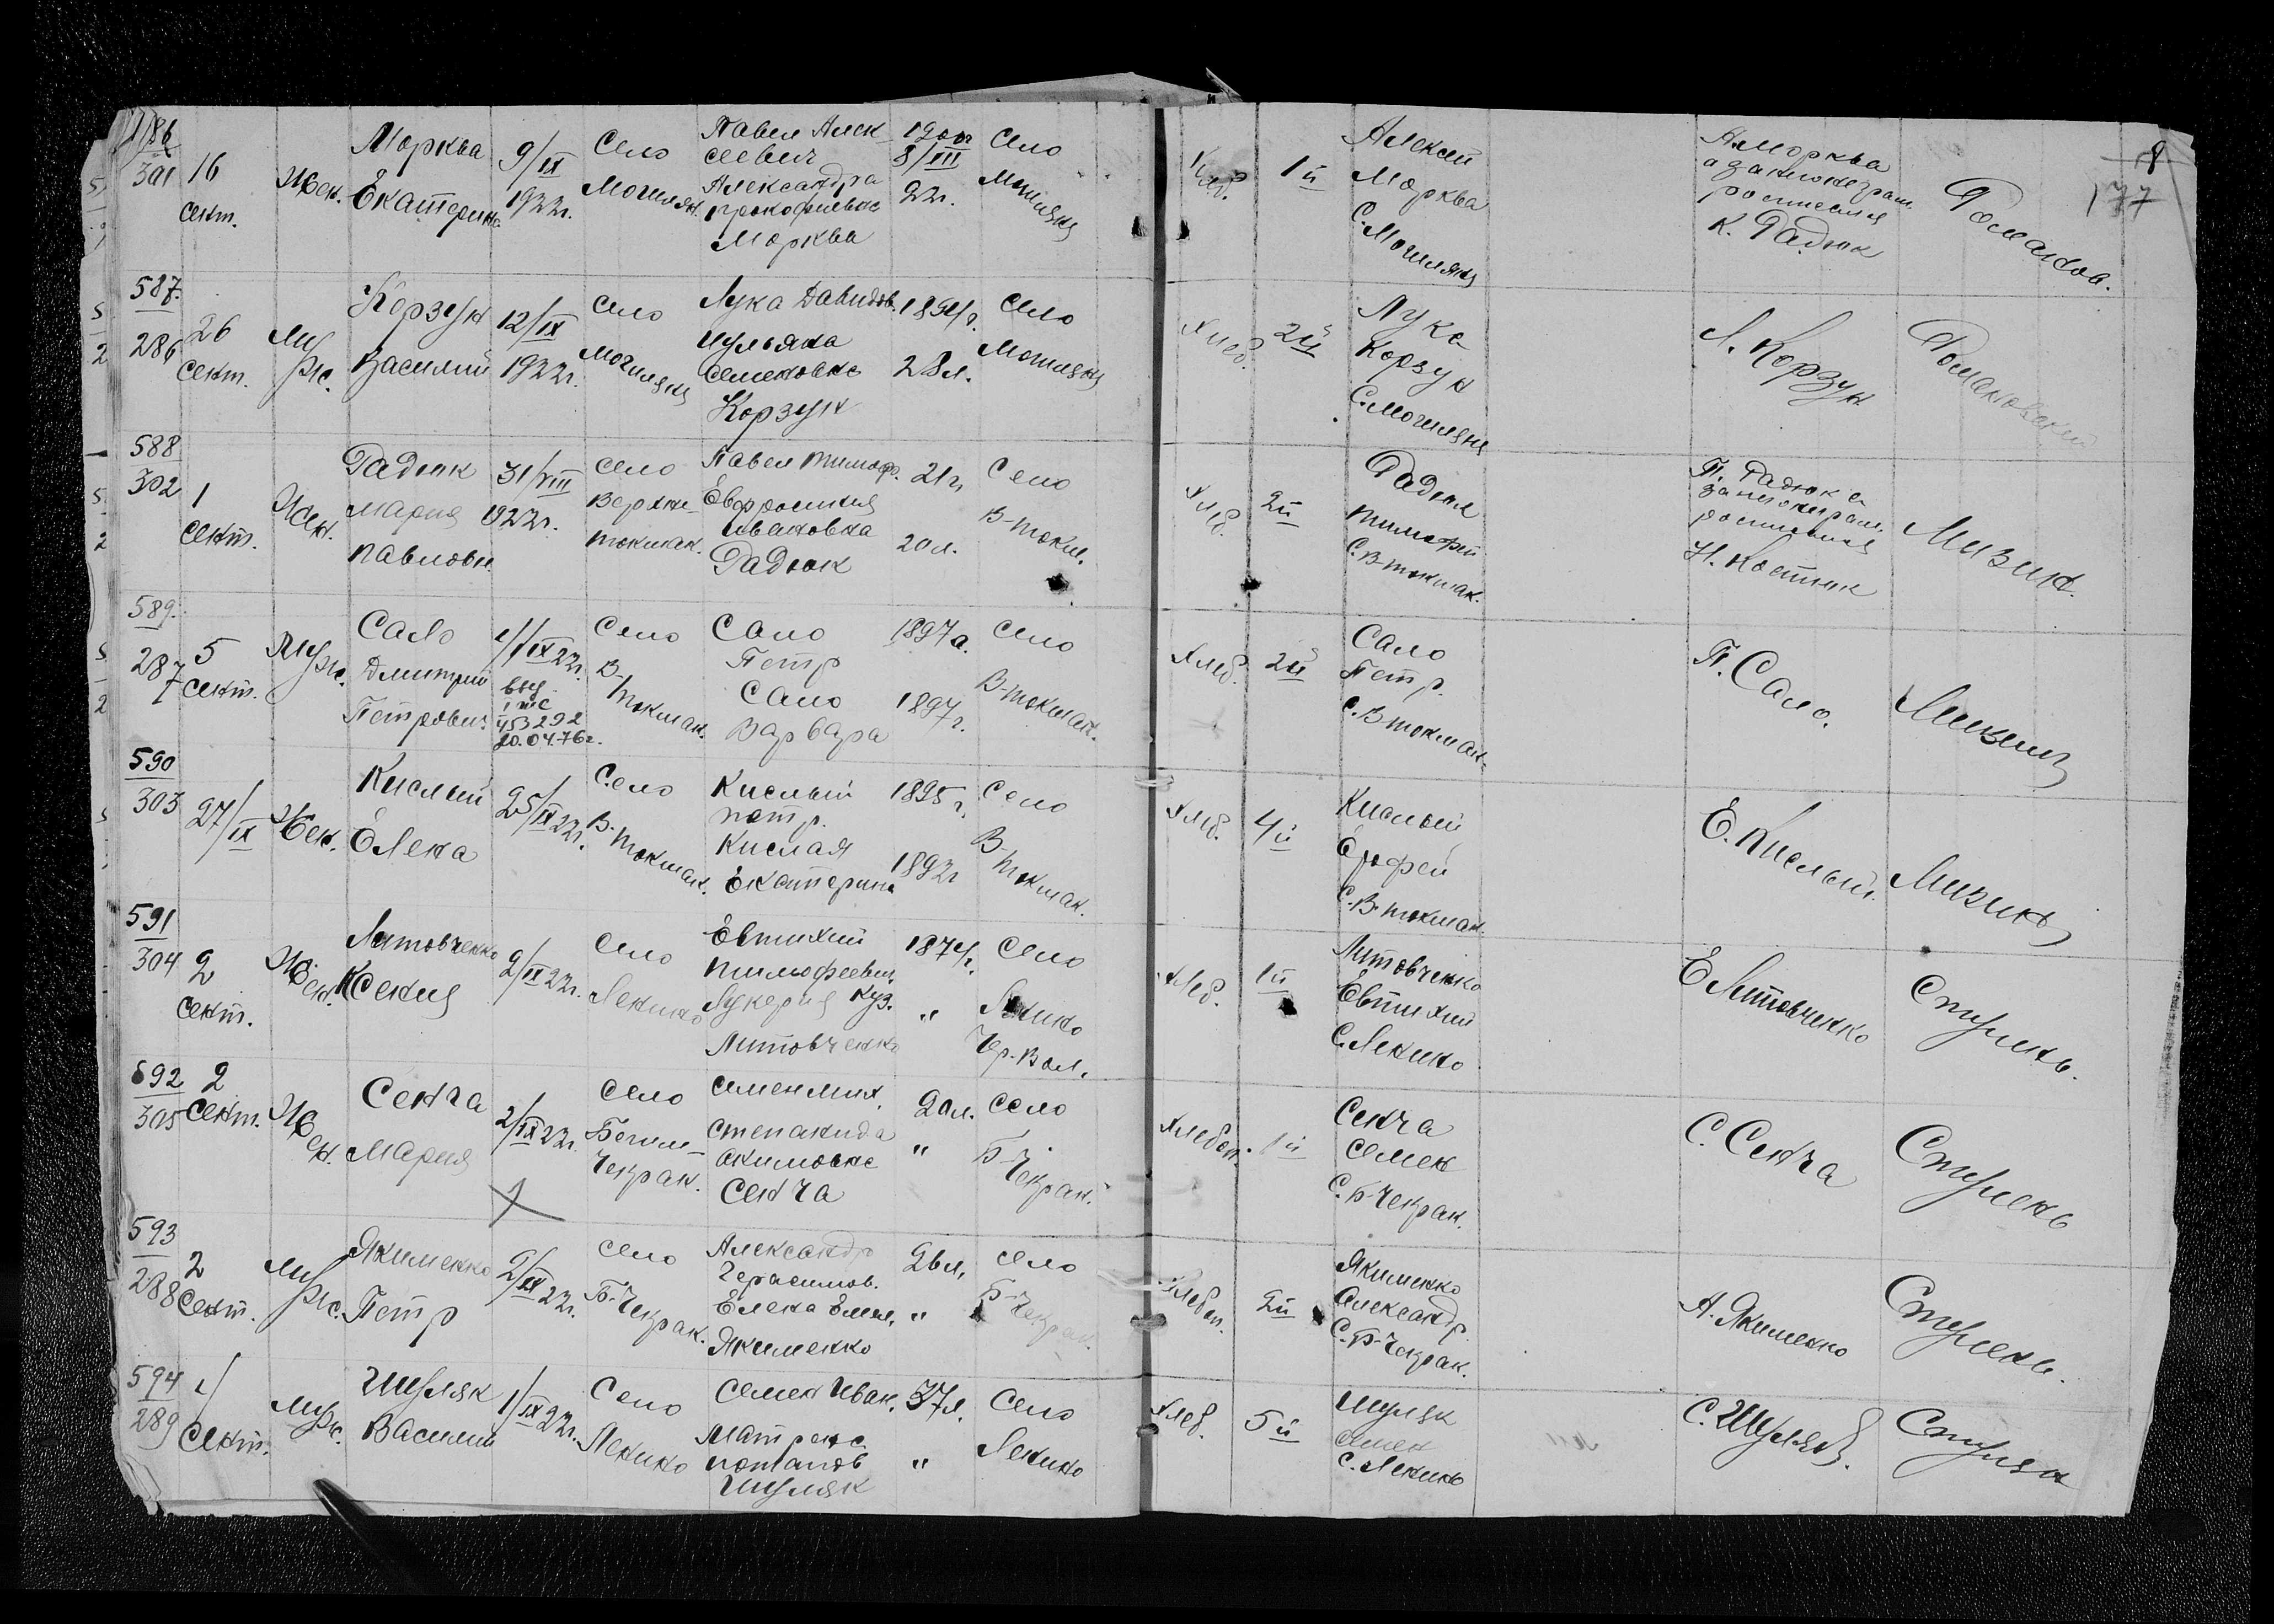 586
301
16
сент.
Жен.
Морква
Екатерина
9/IX
1922г.
Село
Могиляны
Павел Алек
сеевич
Александра
Прокофиевна
Морква
1900г
8/III
22г.
Село
Хлеб.
1й
Алексей
Морква
С.
АМорква
росписался
К. Радюк
8
177
587.
286
26
сент.
Муж.
Корзун
Василий
12/IX
1922г.
Село
Лука Давидов.
Ульяна
Семеновна
Корзун
1894г.
28л.
Село
Хлеб.
2й
Лука
Корзун
Л. Корзун
Романовский
588
302
1
сент.
Жен.
Радюк
Мария
Павловн.
31/VIII
922г.
Село
Верхни-
Токмак.
Павел Тимоф.
Евфросиния
Ивановна
Радюк
21г.
20л.
Село
В-Токм.
Хлеб.
2й
Радюк
Тимофей
С.В-Токмак.
П. Радюк а
Н. Костюк
Мизин.
589.
287
5
сент.
Муж.
Сало
Дмитрий
Петрович.
4/IX22г.
453292
20.04.76г.
Село
В-
Токмак.
Сало
Петр
Сало
Варвара
1897г.
1897г.
Село
В-Токмак.
Хлеб.
2й
Сало
Петр.
С.В-Токмак.
П. Сало.
Мизин
590
303
27/IX
Жен.
Кислый
Елена
25/IX22г.
Село
В-
Токмак.
Кислый
Петр.
Кислая
Екатерина
1895г.
1892г
Село
В-
Токмак.
Хлеб.
4й
Кислый
Ерофей
С.В-Токмак.
Е. Кислый.
Мизин
591
304
2
сент.
Жен.
Литовченко
Ксения
2/IX22г.
Село
Ленино
Евтихий
Тимофеевич.
Лукерия Куз.
Литовченко
1874г.
"
Село
Ленино
Чр-Вол.
Хлеб.
1й
Литовченко
Евтихий
С.Ленино
Е Литовченко
592
305
2
сент.
Жен.
Сенча
Мария
2/IX22г.
Село
Бегим-
Чекрак.
Семен Мих.
Степанида
Акимовна
Сенча
20л.
"
Село
Б-
Чекрак.
Хлебоп.
1й
Сенча
Семен
С.Б-Чекрак.
С. Сенча
593
288
2
сент.
Муж.
Якименко
Петр
2/IX22г.
Село
Б-Чекрак.
Александр
Герасимов.
Елена Емел.
Якименко
26л.
"
Село
Б-
Чекрак.
Хлебоп.
2й
Якименко
Александр.
С.Б-Чекрак.
А. Якименко
594
289
4
Сент.
Муж.
Шуляк
Василий
1/IX22г.
Село
Ленино
Семен Иван.
Матрена
Потапов
Шуляк
37л.
"
Село
Ленино
Хлеб.
5й
Шуляк
Семен
С. Ленино
С. Шуляк.